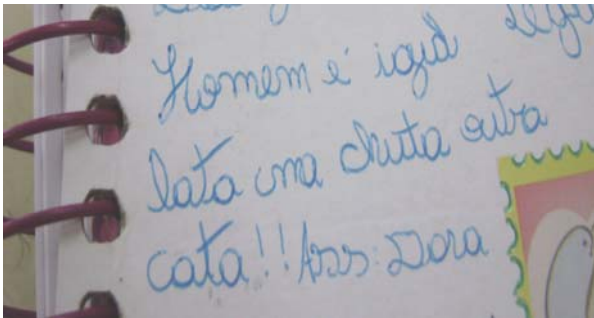 Homem é igual
lata uma chuta outra
cata!! Asss: Dora